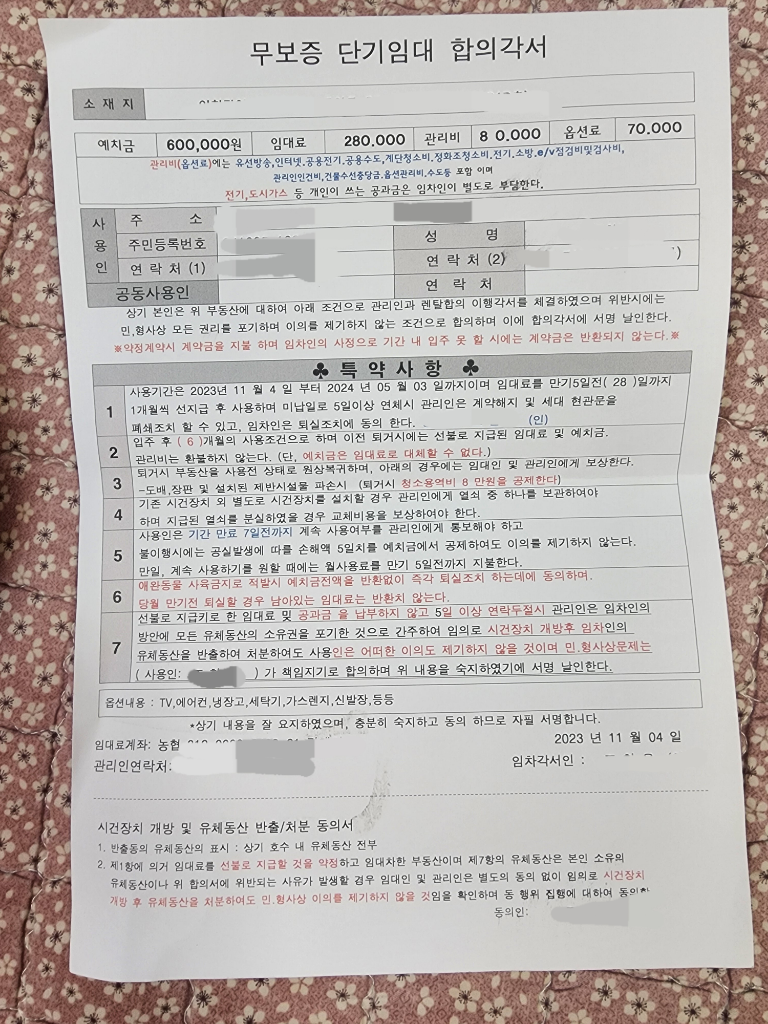 무보증 단기임대 합의각서
소 재 지
예치금 600,000원 임대료 280.000 관리비 8 0.000 옵션료 70.000
관리비(옵션료)에는 유선방송,인터넷.공용전기.공용수도,계단청소비.정화조청소비.전기.소방.e/v점검비및검사비,
관리인인건비,건물수선충당금.옵션관리비.수도등 포함 이며
전기,도시가스 등 개인이 쓰는 공과금은 임차인이 별도로 부담한다.
사용인 주 소
주민등록번호 성 명
연 락 처 (1) 연 락 처 (2) )
공동사용인 연 락 처
상기 본인은 위 부동산에 대하여 아래 조건으로 관리인과 렌탈합의 이행각서를 체결하였으며 위반시에는
민,형사상 모든 권리를 포기하며 이의를 제기하지 않는 조건으로 합의하며 이에 합의각서에 서명 날인한다.
※약정계약시 계약금을 지불 하며 임차인의 사정으로 기간 내 입주 못 할 시에는 계약금은 반환되지 않는다.※
♣ 특 약 사 항 ♣
1 사용기간은 2023년 11 월 4 일 부터 2024 년 05 월 03 일까지이며 임대료를 만기5일전( 28 )일까지
1개월씩 선지급 후 사용하며 미납일로 5일이상 연체시 관리인은 계약해지 및 세대 현관문을
폐쇄조치 할 수 있고, 임차인은 퇴실조치에 동의 한다. (인)
2 입주 후 ( 6 )개월의 사용조건으로 하며 이전 퇴거시에는 선불로 지급된 임대료 및 예치금.
관리비는 환불하지 않는다. (단, 예치금은 임대료로 대체할 수 없다.)
3 퇴거시 부동산을 사용전 상태로 원상복귀하며, 아래의 경우에는 임대인 및 관리인에게 보상한다.
-도배,장판 및 설치된 제반시설물 파손시 (퇴거시 청소용역비 8 만원을 공제한다)
4 기존 시건장치 외 별도로 시건장치를 설치할 경우 관리인에게 열쇠 중 하나를 보관하여야
하며 지급된 열쇠를 분실하였을 경우 교체비용을 보상하여야 한다.
5 사용인은 기간 만료 7일전까지 계속 사용여부를 관리인에게 통보해야 하고
불이행시에는 공실발생에 따를 손해액 5일치를 예치금에서 공제하여도 이의를 제기하지 않는다.
만일, 계속 사용하기를 원할 때에는 월사용료를 만기 5일전까지 지불한다.
6 애완동물 사육금지로 적발시 예치금전액을 반환없이 즉각 퇴실조치 하는데에 동의하며.
당월 만기전 퇴실할 경우 남아있는 임대료는 반환치 않는다.
7 선불로 지급키로 한 임대료 및 공과금 을 납부하지 않고 5일 이상 연락두절시 관리인은 임차인의
방안에 모든 유체동산의 소유권을 포기한 것으로 간주하여 임의로 시건장치 개방후 임차인의
유체동산을 반출하여 처분하여도 사용인은 어떠한 이의도 제기하지 않을 것이며 민.형사상문제는
( 사용인: ) 가 책임지기로 합의하며 위 내용을 숙지하였기에 서명 날인한다.
옵션내용 : TV,에어컨,냉장고,세탁기,가스렌지,신발장,등등
*상기 내용을 잘 요지하였으며, 충분히 숙지하고 동의 하므로 자필 서명합니다.
임대료계좌: 농협 2023 년 11 월 04 일
관리인연락처: 임차각서인 :
시건장치 개방 및 유체동산 반출/처분 동의서
1. 반출동의 유체동산의 표시 : 상기 호수 내 유체동산 전부
2. 제1항에 의거 임대료를 선불로 지급할 것을 약정하고 임대차한 부동산이며 제7항의 유체동산은 본인 소유의
유체동산이나 위 합의서에 위반되는 사유가 발생할 경우 임대인 및 관리인은 별도의 동의 없이 임의로 시건장치
개방 후 유체동산을 처분하여도 민.형사상 이의를 제기하지 않을 것임을 확인하며 동 행위 집행에 대하여
동의인: